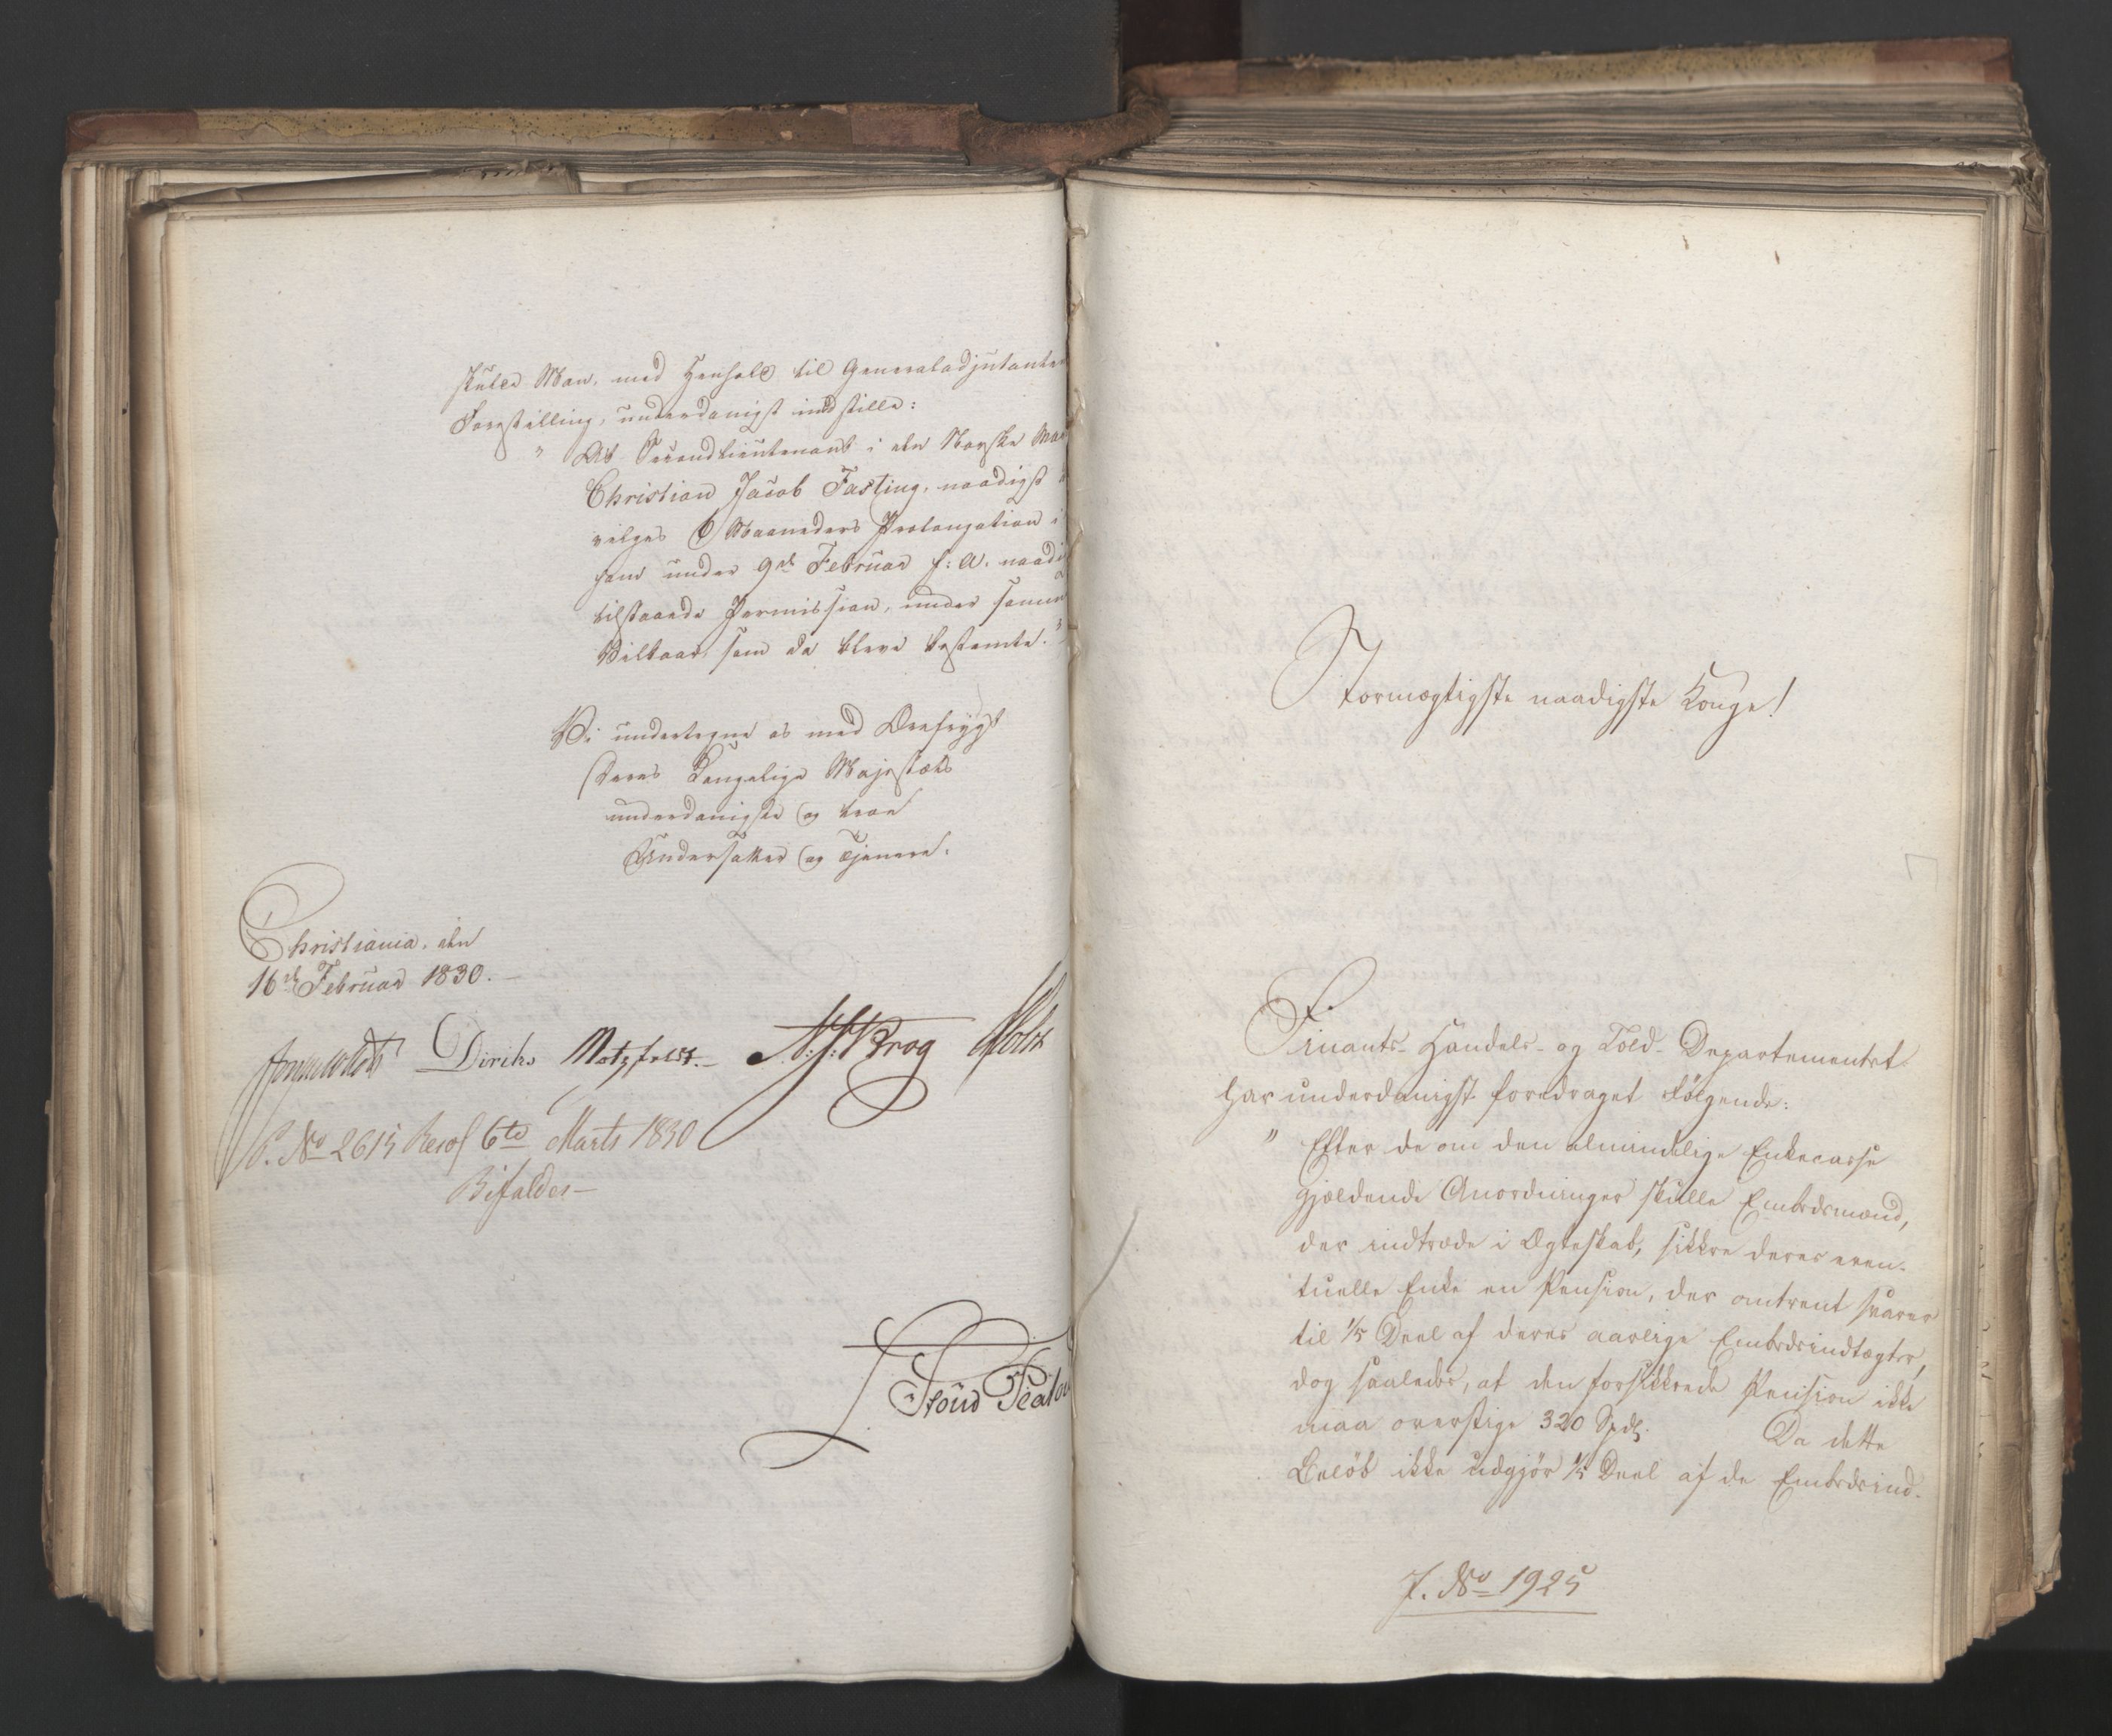 skulle Man, med Henhold til Generaladjutanten
Forestilling, underdanigst indstille:
" At Secondlieutenant i den Norske Mar
Christian Jacob Fasting, naadigst
vilges 6 Maaneders Prolongation i
ham under 9de Februar f: A. naadi
tilstaaede Permission, under samme
Vilkaar, som da bleve bestemte."
Vi undertegne os med Ærefrygt
Deres Kongelige Majestæts
underdanigste og troe
Undersatter og Tjenere.
Christiania, den
16de Februar 1830.
Diriks Motzfeldt. N. J. Krog Holst
P. No 2615 Resol 6te Marts 1830
Bifaldes
Stormægtigste naadigste Konge!
Finants- Handels- og Told-Departementet
har underdanigst foredraget følgende:
" Efter de om den almindelige Enkecasse
gjældende Anordninger skulle Embedsmænd,
der indtræde i Ægteskab, sikkre deres even-
tuelle Enke en Pension, der omtrent svarer
til 1/5 Deel af deres aarlige Embedsindtægter,
dog saaledes, at den forsikkrede Pension ikke
maa overstige 320 Spdlr. Da dette
Beløb ikke udgjør 1/5 Deel af de Embedsind-
J. No 1925